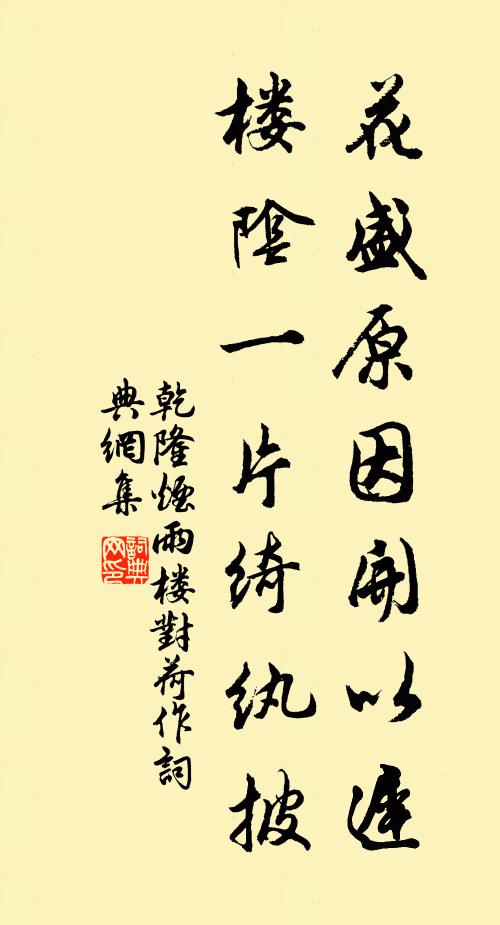 花盛原因開以遲
楼陰一片綺紈披
乾隆煙雨楼對荷作詞
典網集
詞典網印